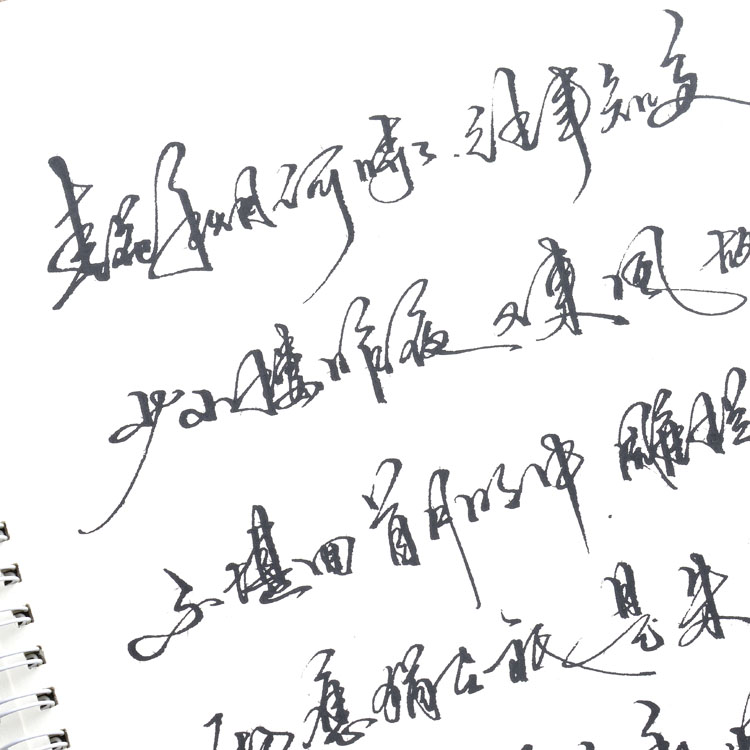 春花秋月何时了.往事知多
少小楼昨夜又东风 故
不堪回首月明中.雕栏
应犹在 祗是朱